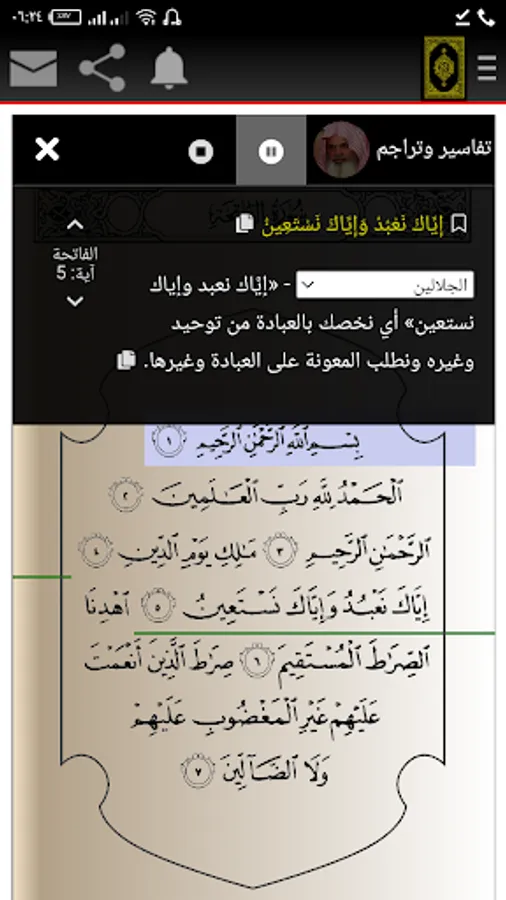 ٠٦:٢٤
تفاسير وتراجم
إِيَّاكَ نَعْبُدُ وَإِيَّاكَ نَسْتَعِينُ
الفاتحة
آية: 5
الجلالين - «إيّاك نعبد وإياك
نستعين» أي نخصك بالعبادة من توحيد
وغيره ونطلب المعونة على العبادة وغيرها.
بِسْمِ ٱللَّهِ ٱلرَّحْمَٰنِ ٱلرَّحِيمِ ١
ٱلْحَمْدُ لِلَّهِ رَبِّ ٱلْعَٰلَمِينَ ٢
ٱلرَّحْمَٰنِ ٱلرَّحِيمِ ٣ مَٰلِكِ يَوْمِ ٱلدِّينِ ٤
إِيَّاكَ نَعْبُدُ وَإِيَّاكَ نَسْتَعِينُ ٥ ٱهْدِنَا
ٱلصِّرَٰطَ ٱلْمُسْتَقِيمَ ٦ صِرَٰطَ ٱلَّذِينَ أَنْعَمْتَ
عَلَيْهِمْ غَيْرِ ٱلْمَغْضُوبِ عَلَيْهِمْ
وَلَا ٱلضَّآلِّينَ ٧